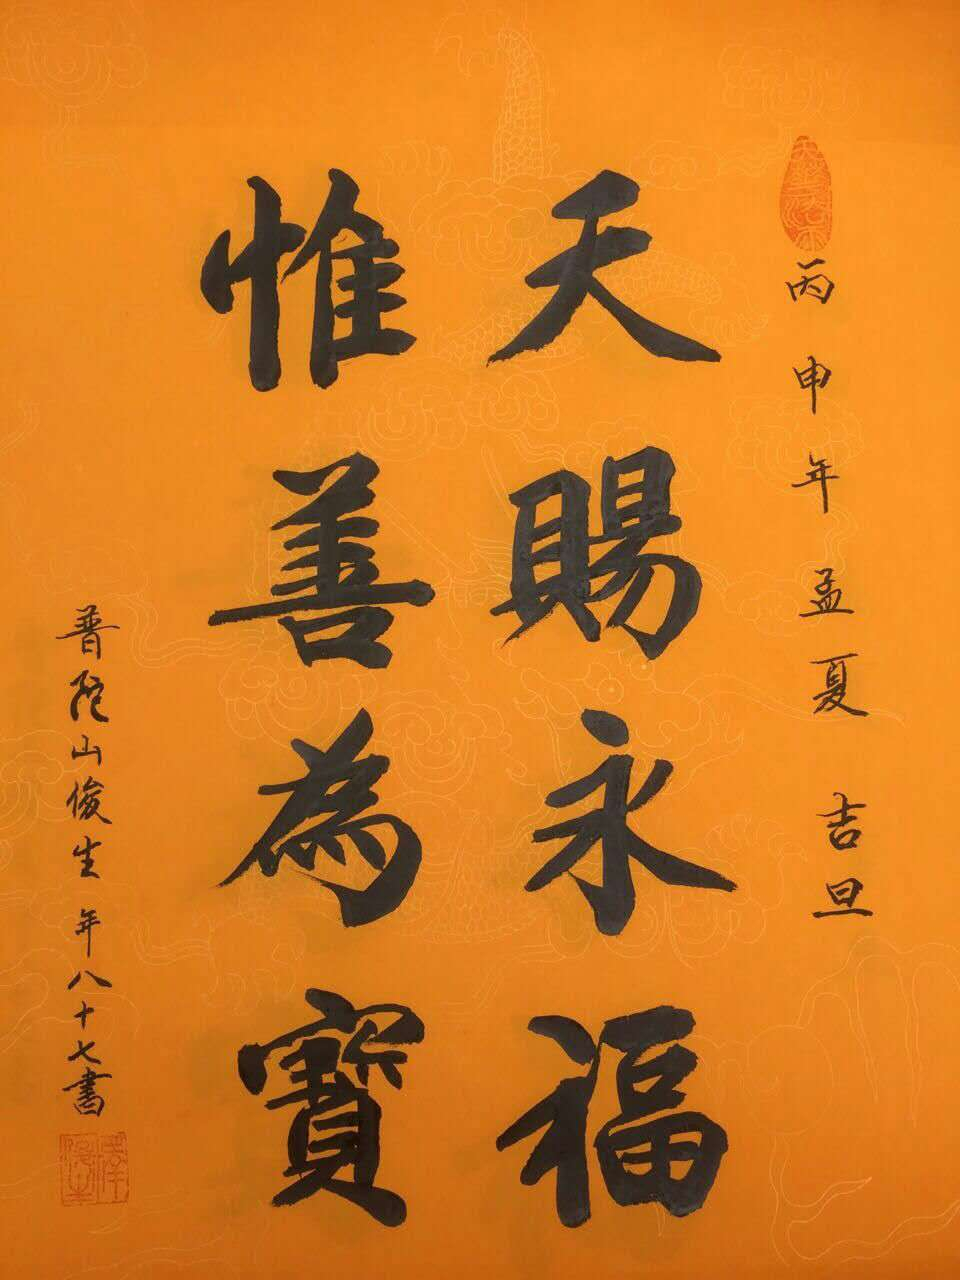 丙申年孟夏 吉旦
天賜永福
惟善為寶
普陀山俊生年八十七書